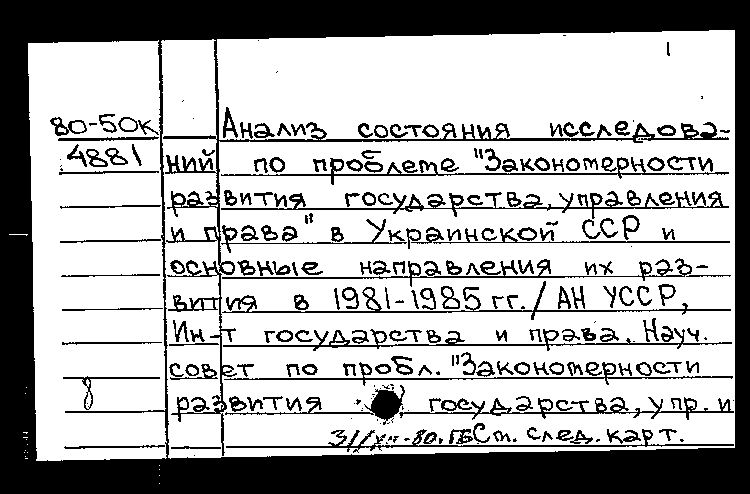 80-50к Анализ состояния исследова-
4881 ний по проблеме "Закономерности
развития государства, управления
и права" в Украинской ССР и
основные направления их раз-
вития в 1981-1985 гг. / АН УССР,
Ин-т государства и права. Науч.
совет по пробл. "Закономерности
8 развития государства, упр. и
См. след. карт.